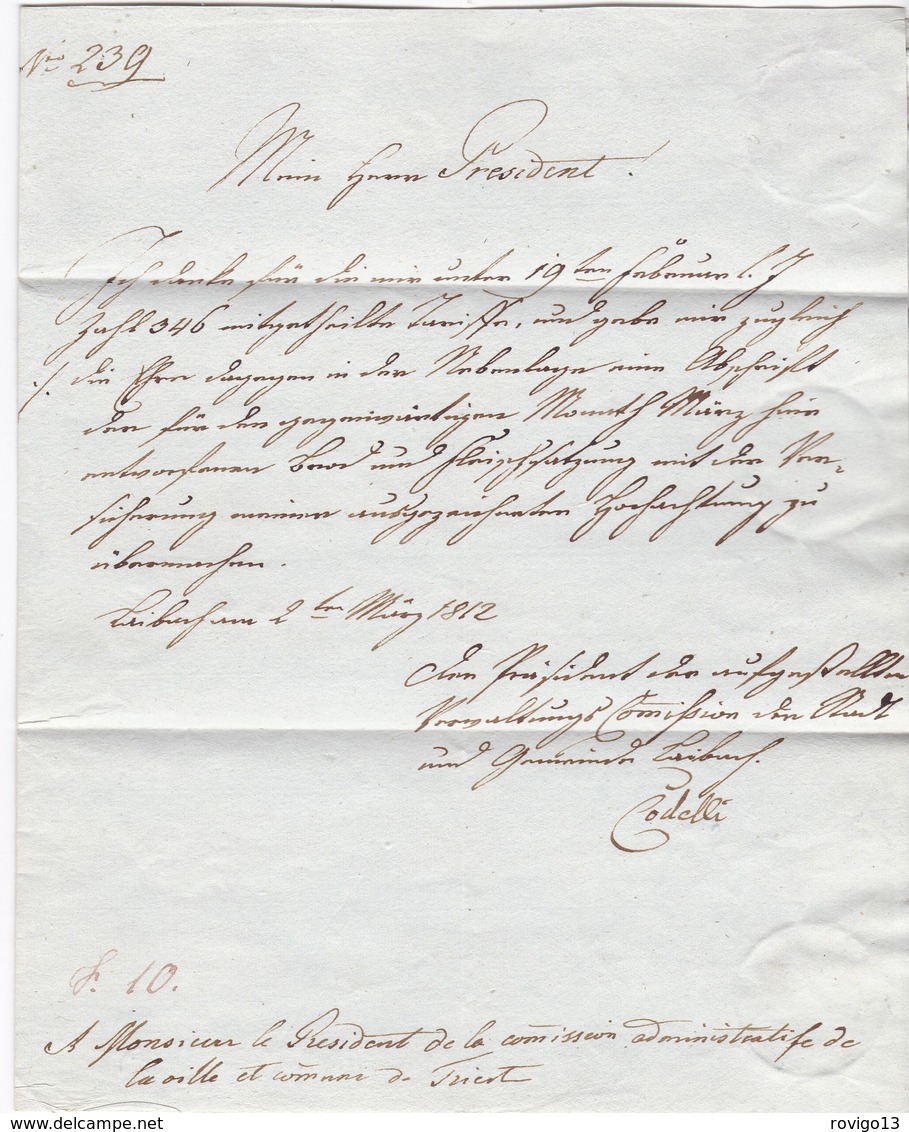 Nro 239
Mein Herr President!
Ich danke für die mir unter 19ten Februar l. J
Zahl 346 mitgetheilte Tariffe, und gebe mir zugleich
./. die Ehre dagegen in der Nebenlage eine Abschrift
der für den gegenwärtigen Monath März hier
entworfenen Brod und Fleischsatzung mit der Ver=
sicherung meiner ausgezeichneten Hochachtung zu
übermachen.
Laibach am 2ten März 1812
Der Präsident der aufgestellten
Verwaltungs Com̄ission der Stadt
und Gemeinde Laibach.
Codelli
F. 10.
A Monsieur le President de la com̄ission administratife de
la ville et com̄une de Triest
www.delcampe.net
rovigo13